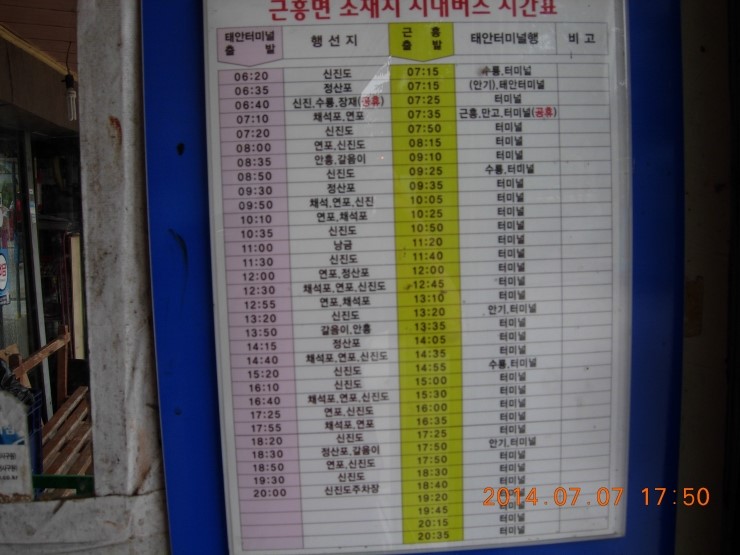 근흥면 소재지 시내버스 시간표
태안터미널 출 발 행 선 지 근 흥 출 발 태안터미널행 비 고
06:20 신진도 07:15 수룡,터미널
06:35 정산포 07:15 (안기),태안터미널
06:40 신진,수룡,장재(공휴) 07:25 터미널
07:10 채석포,연포 07:35 근흥,만고,터미널(공휴)
07:20 신진도 07:50 터미널
08:00 연포,신진도 08:15 터미널
08:35 안흥,갈음이 09:10 터미널
08:50 신진도 09:25 수룡,터미널
09:30 정산포 09:35 터미널
09:50 채석,연포,신진 10:05 터미널
10:10 연포,채석포 10:25 터미널
10:35 신진도 10:50 터미널
11:00 낭금 11:20 터미널
11:30 신진도 11:40 터미널
12:00 연포,정산포 12:00 터미널
12:30 채석포,연포,신진도 12:45 터미널
12:55 연포,채석포 13:10 터미널
13:20 신진도 13:20 안기,터미널
13:50 갈음이,안흥 13:35 터미널
14:15 정산포 14:05 터미널
14:40 채석포,연포,신진도 14:35 터미널
15:20 신진도 14:55 수룡,터미널
16:10 신진도 15:00 터미널
16:40 채석포,연포,신진도 15:30 터미널
17:25 연포,신진도 16:00 터미널
17:55 채석포,연포 16:35 터미널
18:20 신진도 17:25 터미널
18:30 정산포,갈음이 17:50 안기,터미널
18:50 연포,신진도 17:50 터미널
19:30 신진도 18:30 터미널
20:00 신진도주차장 18:40 터미널
19:20 터미널
19:45 터미널
20:15 터미널
20:35 터미널
2014.07.07 17:50